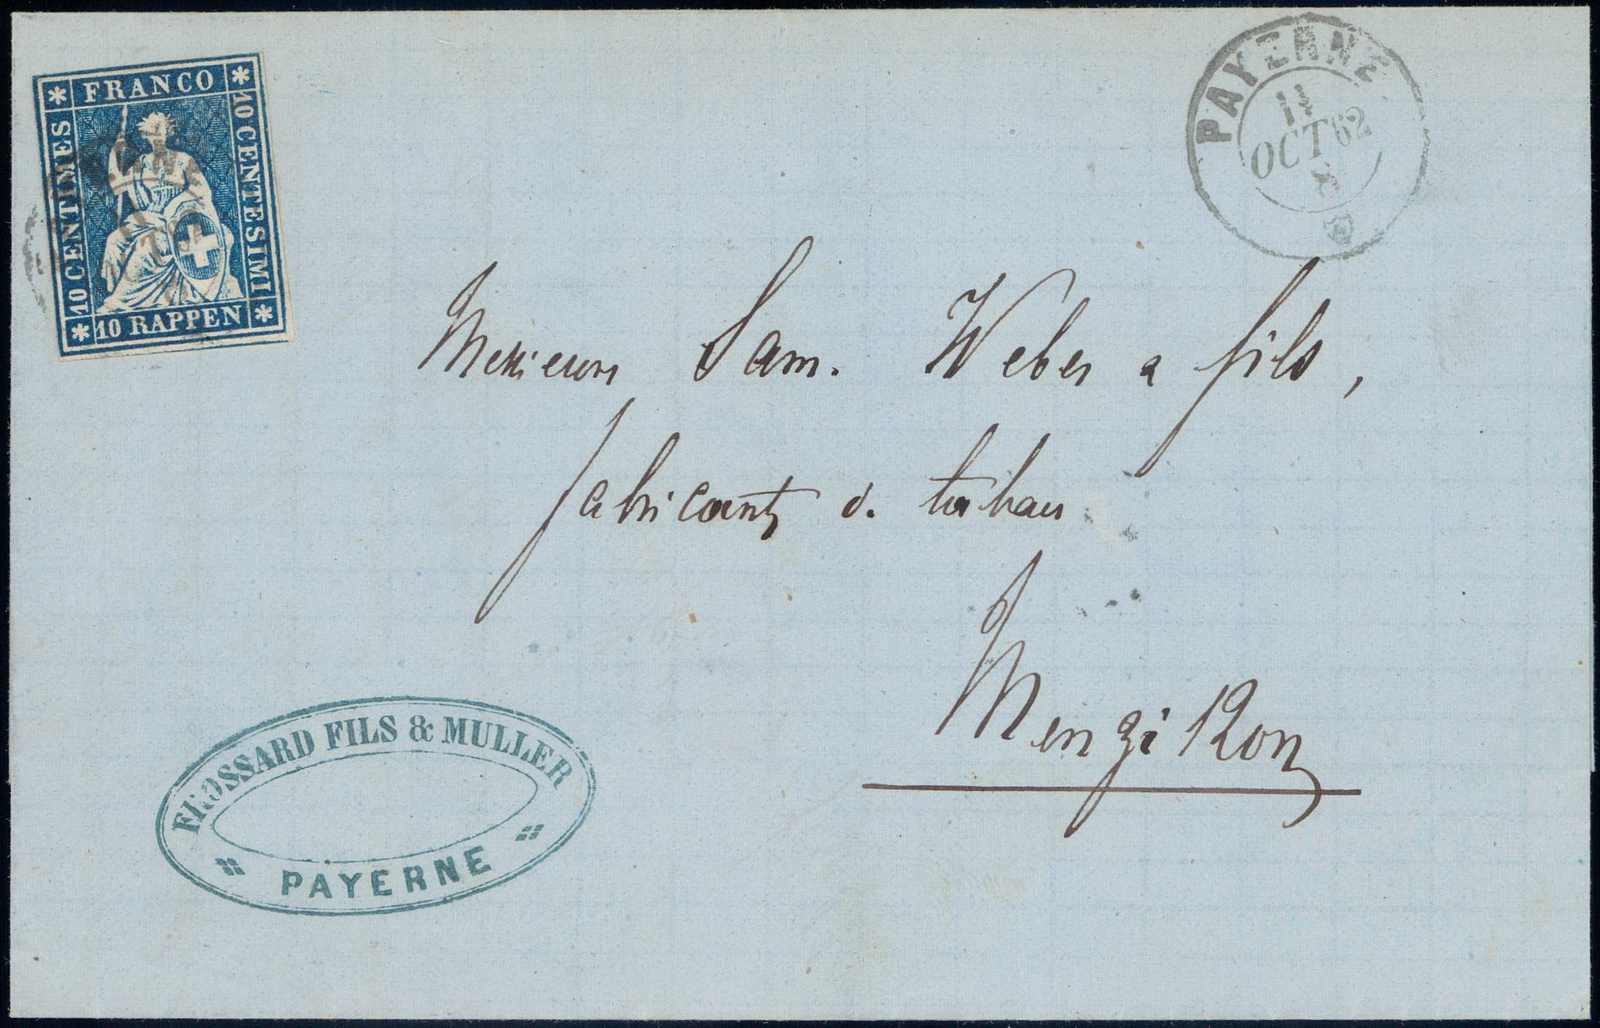 FRANCO
10 CENTIMES
10 CENTESIMI
10 RAPPEN
PAYERNE
OCT 62
Messieurs Sam. Weber & fils,
fabricants d. tabacs
Menziken
FROSSARD FILS & MULLER
PAYERNE